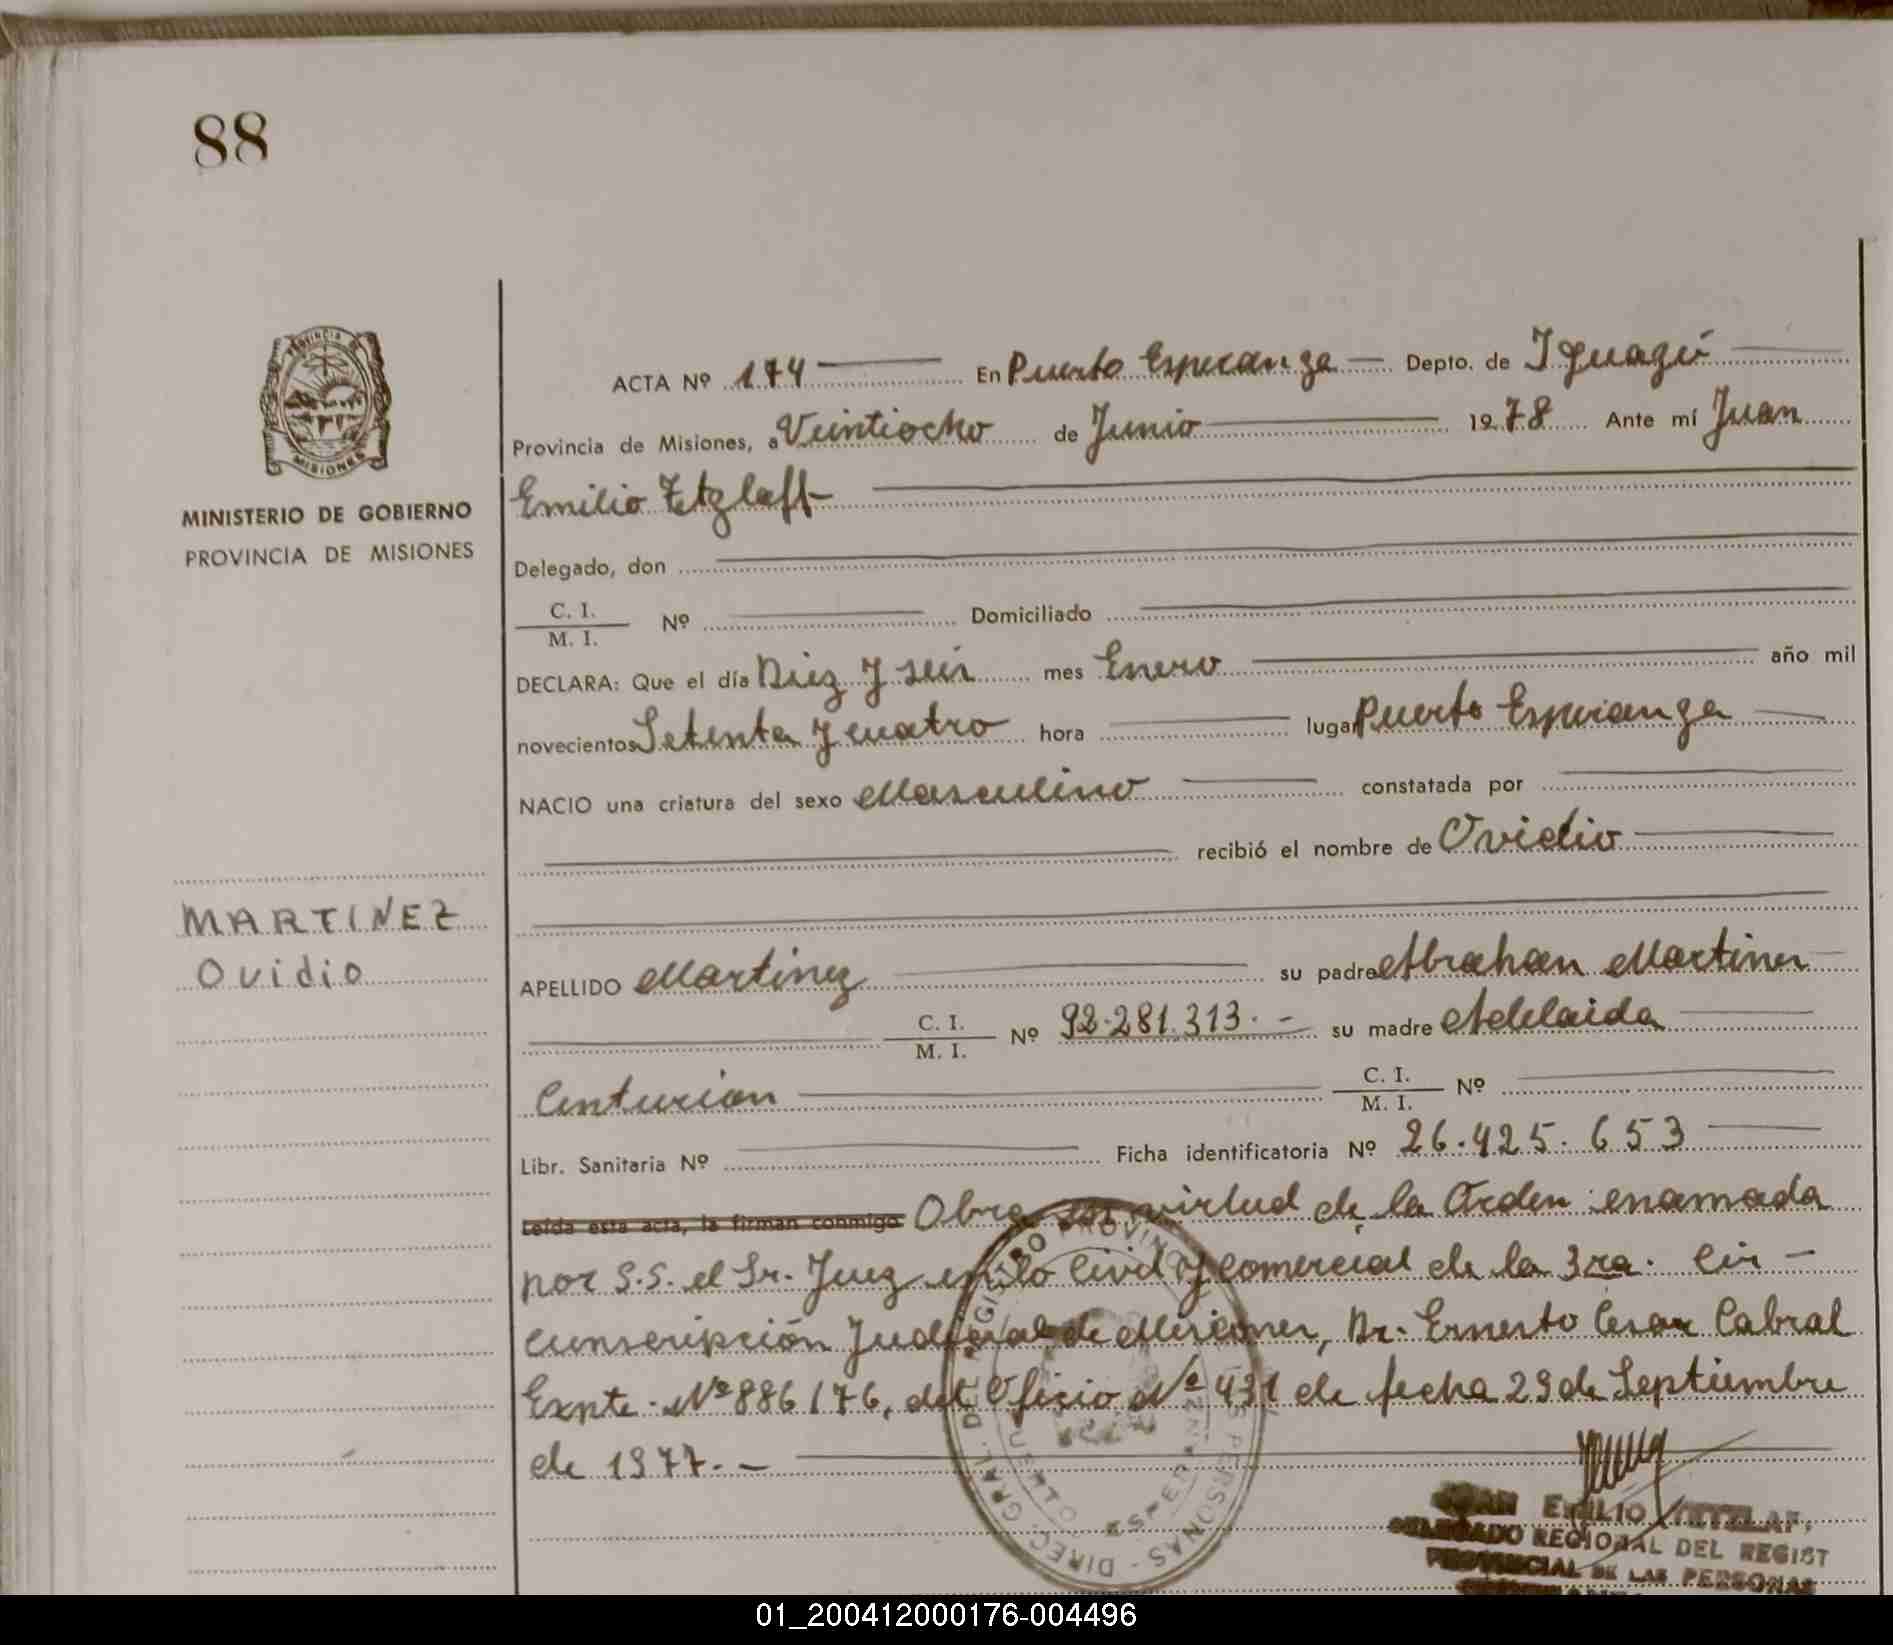 88
PROVINCIA DE
MISIONES
MINISTERIO DE GOBIERNO
PROVINCIA DE MISIONES
MARTINEZ
Ovidio
ACTA Nº 174 En Puerto Esperanza Depto. de Iguazú
Provincia de Misiones, a Veintiocho de Junio 1978 Ante mí Juan
Emilio Tetzlaff
Delegado, don
C. I.
M. I. Nº Domiciliado
DECLARA: Que el día Diez y seis mes Enero año mil
novecientos Setenta y cuatro hora lugar Puerto Esperanza
NACIO una criatura del sexo Masculino constatada por
recibió el nombre de Ovidio
APELLIDO Martinez su padre Abrahan Martinez
C. I.
M. I. Nº 92.281.313.- su madre Adelaida
Centurion C. I.
M. I. Nº
Libr. Sanitaria Nº Ficha identificatoria Nº 26.425.653
Leída esta acta, la firman conmigo Obra en virtud de la Orden enamada
por S.S. el Sr. Juez en lo Civil y Comercial de la 3ra. Cir-
cunscripción Judicial de Misiones, Dr. Ernesto Cesar Cabral
Expte. Nº 886/76, del Oficio Nº 431 de fecha 29 de Septiembre
de 1977.-
DIREC. GRAL. DEL REGISTRO PROVINCIAL DE LAS PERSONAS
PUERTO ESPERANZA
JUAN EMILIO TETZLAFF
DELEGADO REGIONAL DEL REGIST
PROVINCIAL DE LAS PERSONAS
01_200412000176-004496